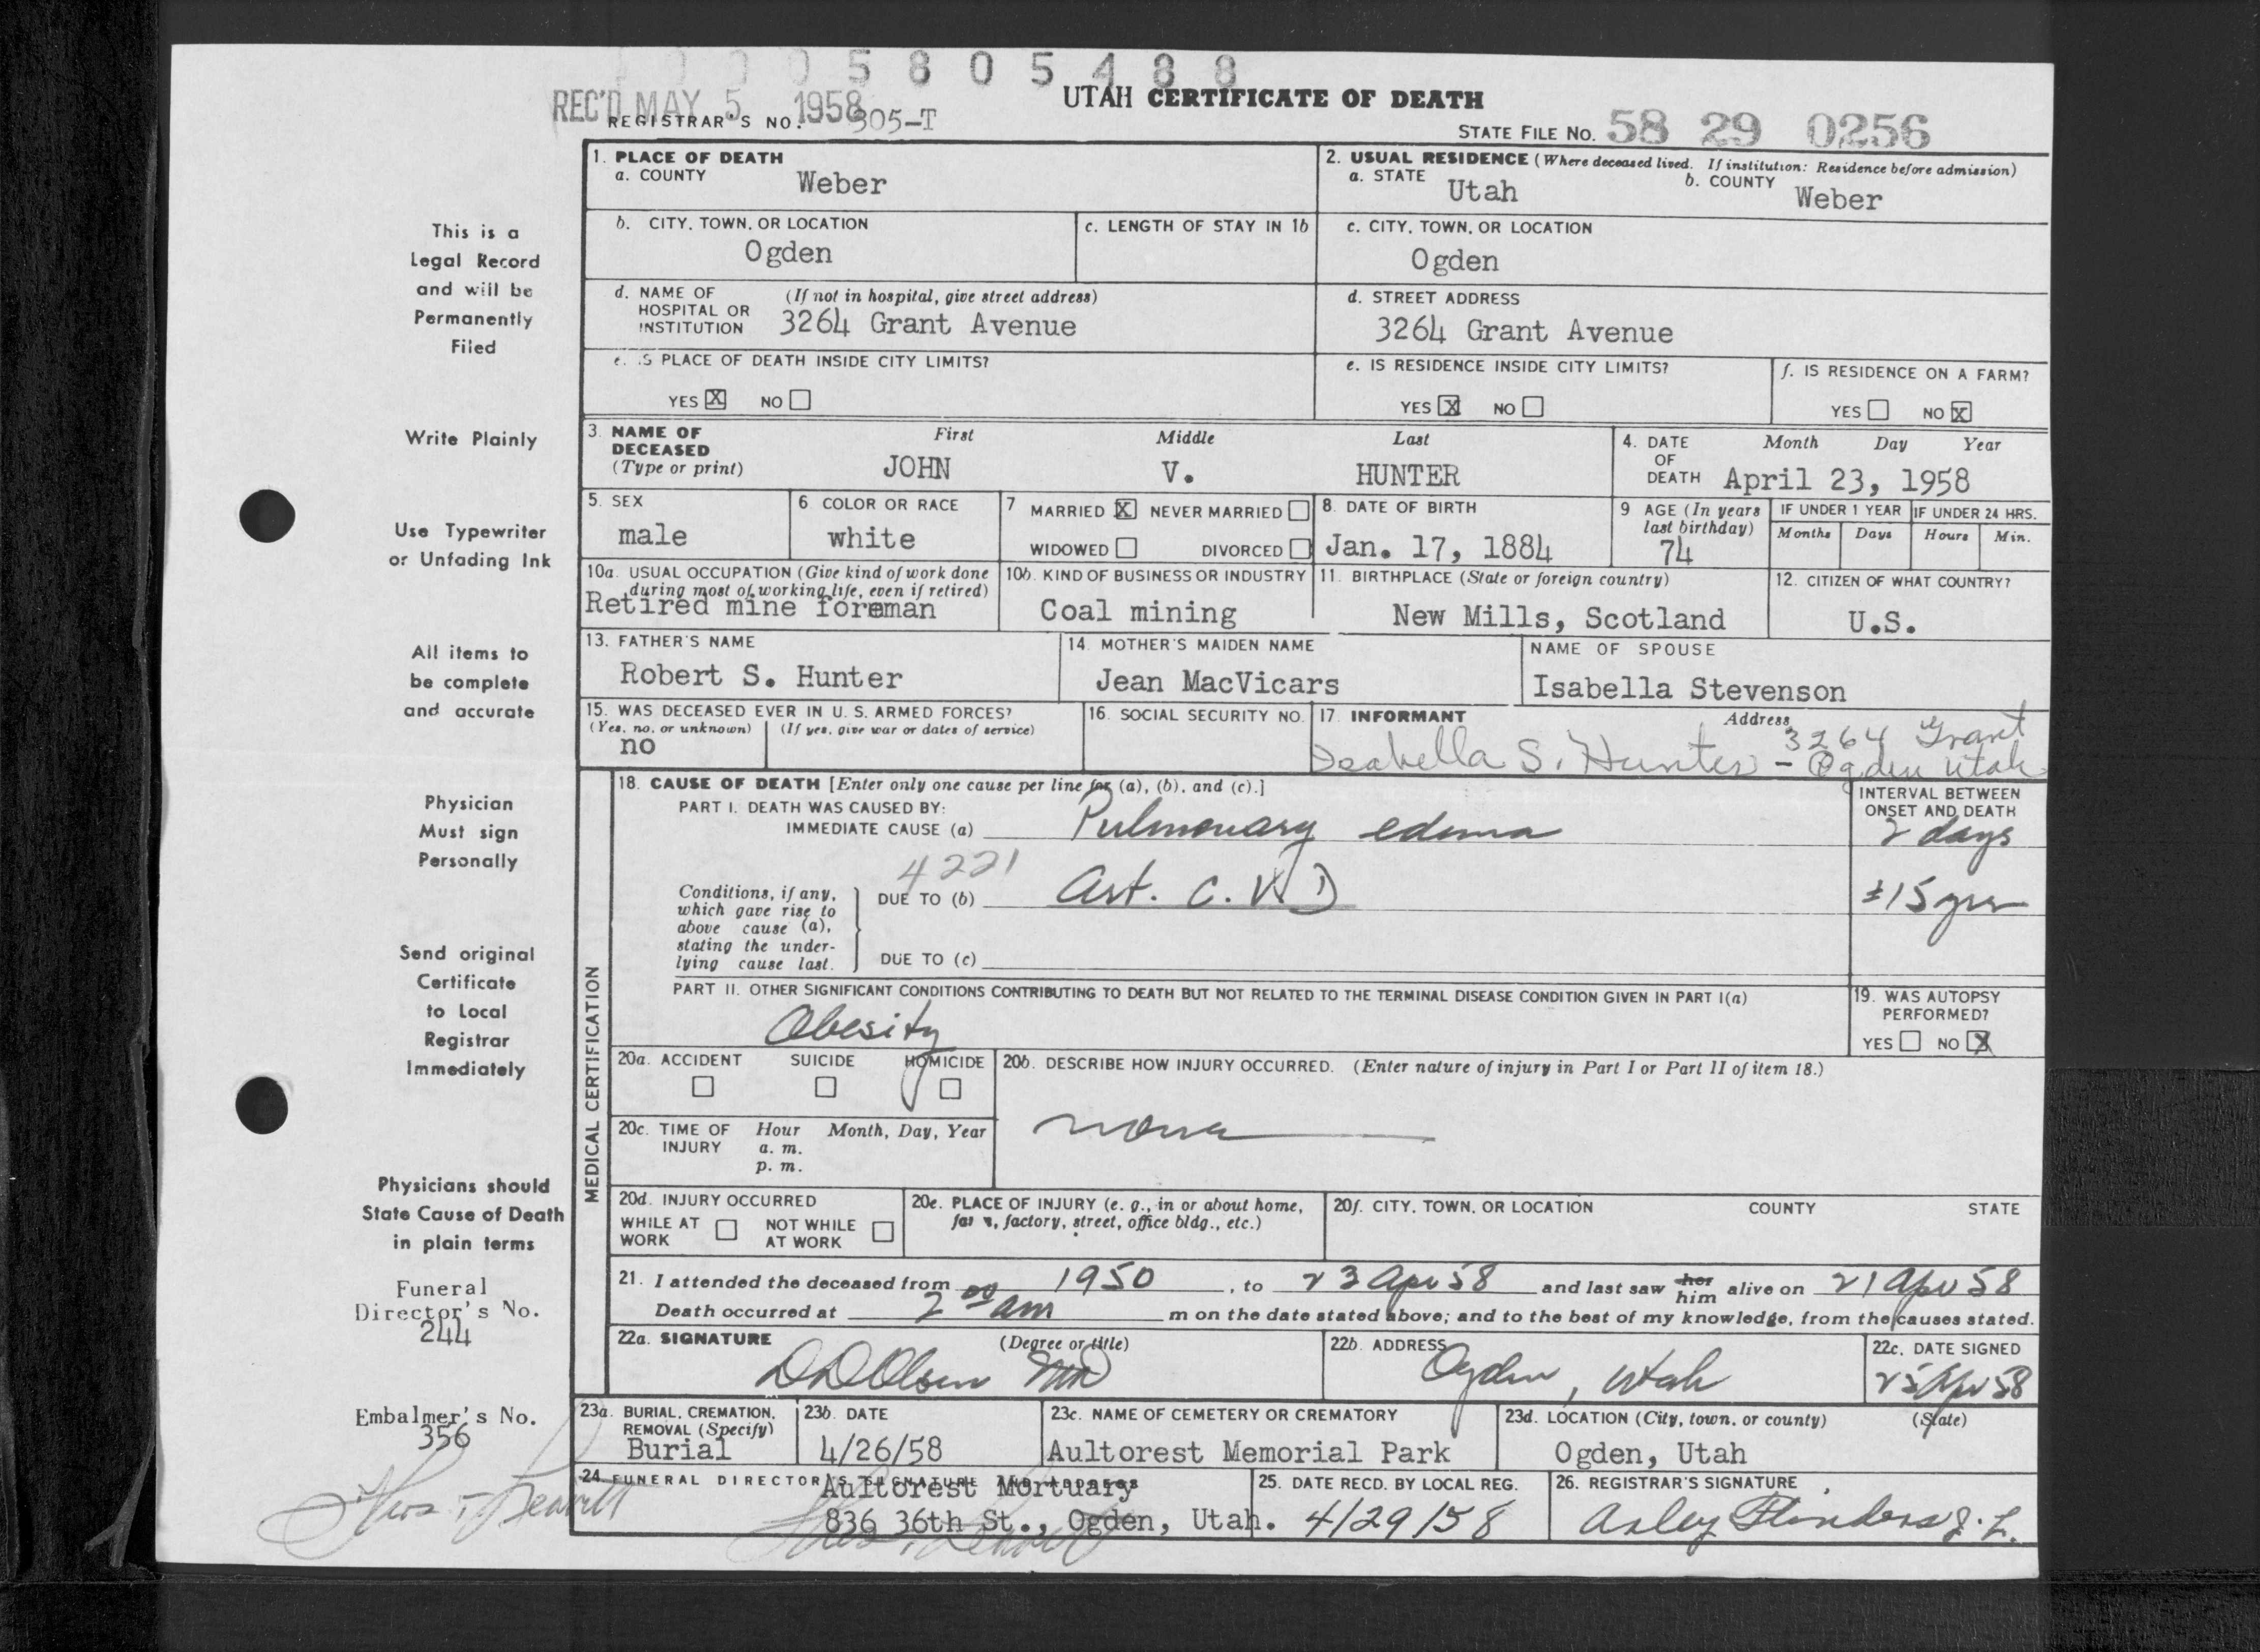 0005805488
REC'D MAY 5 1958
UTAH CERTIFICATE OF DEATH
REGISTRAR'S NO. 305-T
STATE FILE NO. 58 29 0256
1. PLACE OF DEATH
a. COUNTY Weber
2. USUAL RESIDENCE (Where deceased lived. If institution: Residence before admission)
a. STATE Utah b. COUNTY Weber
b. CITY, TOWN, OR LOCATION Ogden
c. LENGTH OF STAY IN 1b
c. CITY, TOWN, OR LOCATION Ogden
d. NAME OF HOSPITAL OR INSTITUTION (If not in hospital, give street address)
3264 Grant Avenue
d. STREET ADDRESS
3264 Grant Avenue
e. IS PLACE OF DEATH INSIDE CITY LIMITS?
YES X NO
e. IS RESIDENCE INSIDE CITY LIMITS?
YES X NO
f. IS RESIDENCE ON A FARM?
YES NO X
3. NAME OF DECEASED (Type or print)
First Middle Last
JOHN V. HUNTER
4. DATE OF DEATH Month Day Year
April 23, 1958
5. SEX male
6 COLOR OR RACE white
7 MARRIED X NEVER MARRIED
WIDOWED DIVORCED
8. DATE OF BIRTH Jan. 17, 1884
9 AGE (In years last birthday) 74
IF UNDER 1 YEAR Months Days
IF UNDER 24 HRS. Hours Min.
10a. USUAL OCCUPATION (Give kind of work done during most of working life, even if retired)
Retired mine foreman
10b. KIND OF BUSINESS OR INDUSTRY
Coal mining
11. BIRTHPLACE (State or foreign country)
New Mills, Scotland
12. CITIZEN OF WHAT COUNTRY?
U.S.
13. FATHER'S NAME
Robert S. Hunter
14. MOTHER'S MAIDEN NAME
Jean MacVicars
NAME OF SPOUSE
Isabella Stevenson
15. WAS DECEASED EVER IN U. S. ARMED FORCES?
(Yes, no, or unknown) (If yes, give war or dates of service)
no
16. SOCIAL SECURITY NO.
17. INFORMANT Address
Isabella S. Hunter - 3264 Grant
Ogden Utah
MEDICAL CERTIFICATION
18. CAUSE OF DEATH [Enter only one cause per line for (a), (b), and (c).]
PART I. DEATH WAS CAUSED BY:
IMMEDIATE CAUSE (a) Pulmonary edema
INTERVAL BETWEEN ONSET AND DEATH
2 days
4221
Conditions, if any, which gave rise to above cause (a), stating the underlying cause last.
DUE TO (b) Art. C.V.D
±15 yrs
DUE TO (c)
PART II. OTHER SIGNIFICANT CONDITIONS CONTRIBUTING TO DEATH BUT NOT RELATED TO THE TERMINAL DISEASE CONDITION GIVEN IN PART I(a)
Obesity
19. WAS AUTOPSY PERFORMED?
YES NO X
20a. ACCIDENT SUICIDE HOMICIDE
20b. DESCRIBE HOW INJURY OCCURRED. (Enter nature of injury in Part I or Part II of item 18.)
none
20c. TIME OF INJURY Hour Month, Day, Year
a. m.
p. m.
20d. INJURY OCCURRED
WHILE AT WORK NOT WHILE AT WORK
20e. PLACE OF INJURY (e. g., in or about home, farm, factory, street, office bldg., etc.)
20f. CITY, TOWN, OR LOCATION COUNTY STATE
21. I attended the deceased from 1950, to 23 Apr 58 and last saw her him alive on 21 Apr 58
Death occurred at 2 00 am m on the date stated above; and to the best of my knowledge, from the causes stated.
22a. SIGNATURE (Degree or title)
D D Olsen MD
22b. ADDRESS
Ogden, Utah
22c. DATE SIGNED
25 Apr 58
23a. BURIAL, CREMATION, REMOVAL (Specify)
Burial
23b. DATE
4/26/58
23c. NAME OF CEMETERY OR CREMATORY
Aultorest Memorial Park
23d. LOCATION (City, town, or county) (State)
Ogden, Utah
24 FUNERAL DIRECTOR'S SIGNATURE AND ADDRESS
Aultorest Mortuary
836 36th St., Ogden, Utah.
25. DATE RECD. BY LOCAL REG.
4/29/58
26. REGISTRAR'S SIGNATURE
Arley Flinders J.L.
This is a
Legal Record
and will be
Permanently
Filed
Write Plainly
Use Typewriter
or Unfading Ink
All items to
be complete
and accurate
Physician
Must sign
Personally
Send original
Certificate
to Local
Registrar
Immediately
Physicians should
State Cause of Death
in plain terms
Funeral
Director's No.
244
Embalmer's No.
356